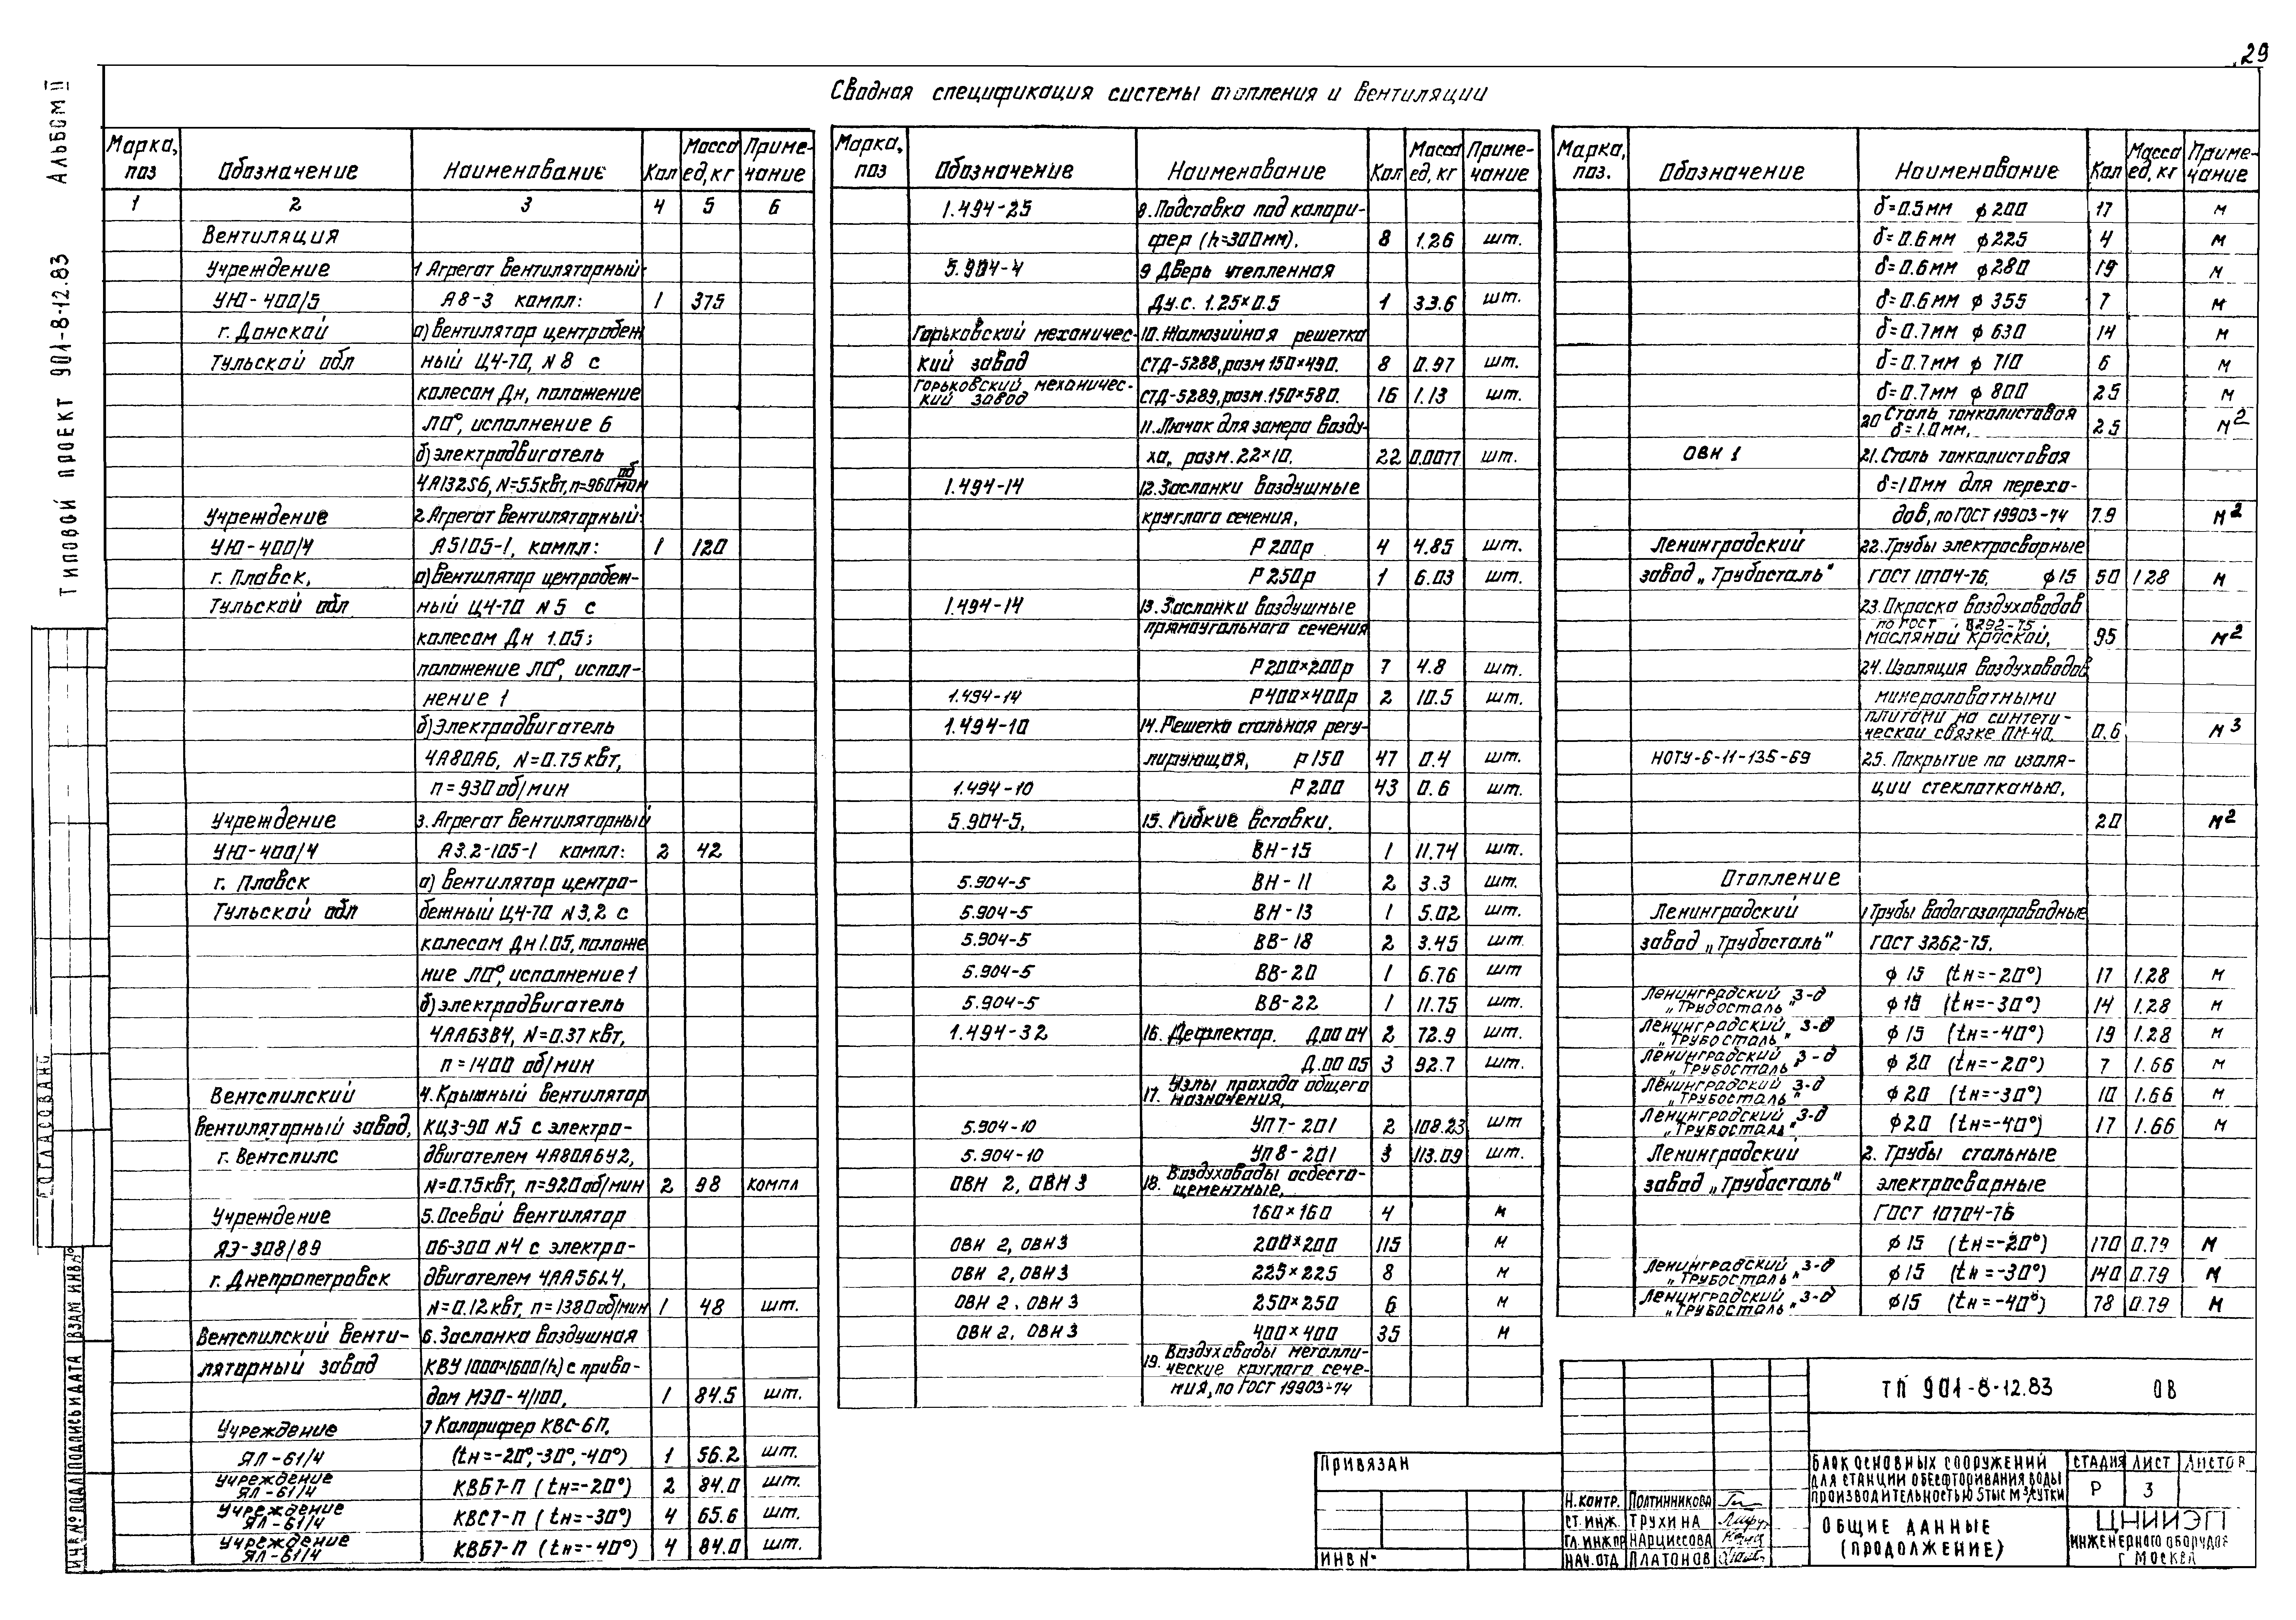 29
Сводная спецификация системы отопления и вентиляции
Альбом II
Типовой проект 901-8-12.83
Марка, поз Обозначение Наименование Кол Масса ед, кг Примечание
1 2 3 4 5 6
Вентиляция
Учреждение 1 Агрегат вентиляторный
УЮ-400/5 А8-3 компл: 1 375
г. Донской а) вентилятор центробеж
Тульской обл ный Ц4-70, N 8 с
колесом Дн, положение
Л0°, исполнение 6
б) электродвигатель
4А132S6, N=5.5 квт, n=960 об/мин
Учреждение 2. Агрегат вентиляторный
УЮ-400/4 А5105-1, компл: 1 120
г. Плавск, а) вентилятор центробеж-
Тульской обл ный Ц4-70 N 5 с
колесом Дн 1.05;
положение Л0°, испол-
нение 1
б) Электродвигатель
4А80А6, N=0.75 квт,
n=930 об/мин
Учреждение 3. Агрегат вентиляторный
УЮ-400/4 А3.2-105-1 компл: 2 42
г. Плавск а) вентилятор центро-
Тульской обл бежный Ц4-70 N 3,2 с
колесом Дн 1.05, положе
ние Л0°, исполнение 1
б) электродвигатель
4АА63В4, N=0.37 квт,
n=1400 об/мин
Вентспилский 4. Крышный вентилятор
вентиляторный завод, КЦ3-90 N5 с электро-
г. Вентспилс двигателем 4А80А6У2,
N=0.75 квт, n=920 об/мин 2 98 компл
Учреждение 5. Осевой вентилятор
ЯЭ-308/89 06-300 N4 с электро-
г. Днепропетровск двигателем 4АА56L4,
N=0.12 квт, n=1380 об/мин 1 48 шт.
Вентспилский венти- 6. Заслонка воздушная
ляторный завод КВУ 1000×1600(h) с приво-
дом МЭО-4/100, 1 84.5 шт.
Учреждение 7 Калорифер КВС-6П,
ЯЛ-61/4 (tн=-20°,-30°,-40°) 1 56.2 шт.
Учреждение ЯЛ-61/4 КВБ7-П (tн=-20°) 2 84.0 шт.
Учреждение ЯЛ-61/4 КВС7-П (tн=-30°) 4 65.6 шт.
Учреждение ЯЛ-61/4 КВБ7-П (tн=-40°) 4 84.0 шт.
Марка, поз Обозначение Наименование Кол Масса ед, кг Примечание
1.494-25 8. Подставка под калори-
фер (h=300мм). 8 1.26 шт.
5.904-4 9 Дверь утепленная
Ду.с. 1.25×0.5 1 33.6 шт.
Горьковский механичес- 10. Жалюзийная решетка
кий завод СТД-5288, разм 150×490. 8 0.97 шт.
Горьковский механичес-кий завод СТД-5289, разм. 150×580. 16 1.13 шт.
11. Лючок для замера возду-
ха, разм. 22×10. 22 0.0077 шт.
1.494-14 12. Заслонки воздушные
круглого сечения,
Р 200р 4 4.85 шт.
Р 250р 1 6.03 шт.
1.494-14 13. Заслонки воздушные
прямоугольного сечения
Р 200×200р 7 4.8 шт.
1.494-14 Р 400×400р 2 10.5 шт.
1.494-10 14. Решетка стальная регу-
лирующая, Р 150 47 0.4 шт.
1.494-10 Р 200 43 0.6 шт.
5.904-5, 15. Гибкие вставки.
ВН-15 1 11.74 шт.
5.904-5 ВН-11 2 3.3 шт.
5.904-5 ВН-13 1 5.02 шт.
5.904-5 ВВ-18 2 3.45 шт.
5.904-5 ВВ-20 1 6.76 шт
5.904-5 ВВ-22 1 11.75 шт.
1.494-32 16. Дефлектор. Д.00 04 2 72.9 шт.
Д.00 05 3 92.7 шт.
17. Узлы прохода общего назначения,
5.904-10 УП7-201 2 108.23 шт
5.904-10 УП8-201 3 113.09 шт.
ОВН 2, ОВН 3 18. Воздуховоды асбесто-цементные,
160×160 4 м
ОВН 2, ОВН 3 200×200 115 м
ОВН 2, ОВН 3 225×225 8 м
ОВН 2, ОВН 3 250×250 6 м
ОВН 2, ОВН 3 400×400 35 м
19. Воздуховоды металли-
ческие круглого сече-
ния, по ГОСТ 19903-74
Марка, поз. Обозначение Наименование Кол Масса ед, кг Примечание
δ=0.5мм ϕ200 17 м
δ=0.6мм ϕ225 4 м
δ=0.6мм ϕ280 19 м
δ=0.6мм ϕ355 7 м
δ=0.7мм ϕ630 14 м
δ=0.7мм ϕ710 6 м
δ=0.7мм ϕ800 25 м
20 Сталь тонколистовая δ=1.0мм, 25 м2
ОВН 1 21. Сталь тонколистовая
δ=10мм для перехо-
дов, по ГОСТ 19903-74 7.9 м2
Ленинградский 22. Трубы электросварные
завод „Трубосталь" ГОСТ 10704-76, ϕ15 50 1.28 м
23. Окраска воздуховодов
по ГОСТ 8292-75
масляной краской, 95 м2
24. Изоляция воздуховодов
минераловатными
плитами на синтети-
ческой связке ПМ-40. 0.6 м3
НОТУ-6-11-135-69 25. Покрытие по изоля-
ции стеклотканью,
20 м2
Отопление
Ленинградский 1 Трубы водогазопроводные
завод „Трубосталь" ГОСТ 3262-75.
ϕ15 (tн=-20°) 17 1.28 м
Ленинградский з-д „Трубосталь" ϕ15 (tн=-30°) 14 1.28 м
Ленинградский з-д „Трубосталь" ϕ15 (tн=-40°) 19 1.28 м
Ленинградский з-д „Трубосталь" ϕ20 (tн=-20°) 7 1.66 м
Ленинградский з-д „Трубосталь" ϕ20 (tн=-30°) 10 1.66 м
Ленинградский з-д „Трубосталь" ϕ20 (tн=-40°) 17 1.66 м
Ленинградский 2. Трубы стальные
завод „Трубосталь" электросварные
ГОСТ 10704-76
ϕ15 (tн=-20°) 170 0.79 м
Ленинградский з-д „Трубосталь" ϕ15 (tн=-30°) 140 0.79 м
Ленинградский з-д „Трубосталь" ϕ15 (tн=-40°) 78 0.79 м
Согласовано
Инв № подл Подпись и дата Взам инв №
Привязан
Инв №
ТП 901-8-12.83 ОВ
Н.контр. Полтинникова
Ст. инж. Трухина
Гл. инж пр Нарциссова
Нач. отд Платонов
Блок основных сооружений
для станции обесфторивания воды
производительностью 5 тыс м3/сутки
Стадия Лист Листов
Р 3
Общие данные
(продолжение)
ЦНИИЭП
инженерного оборудов
г Москва